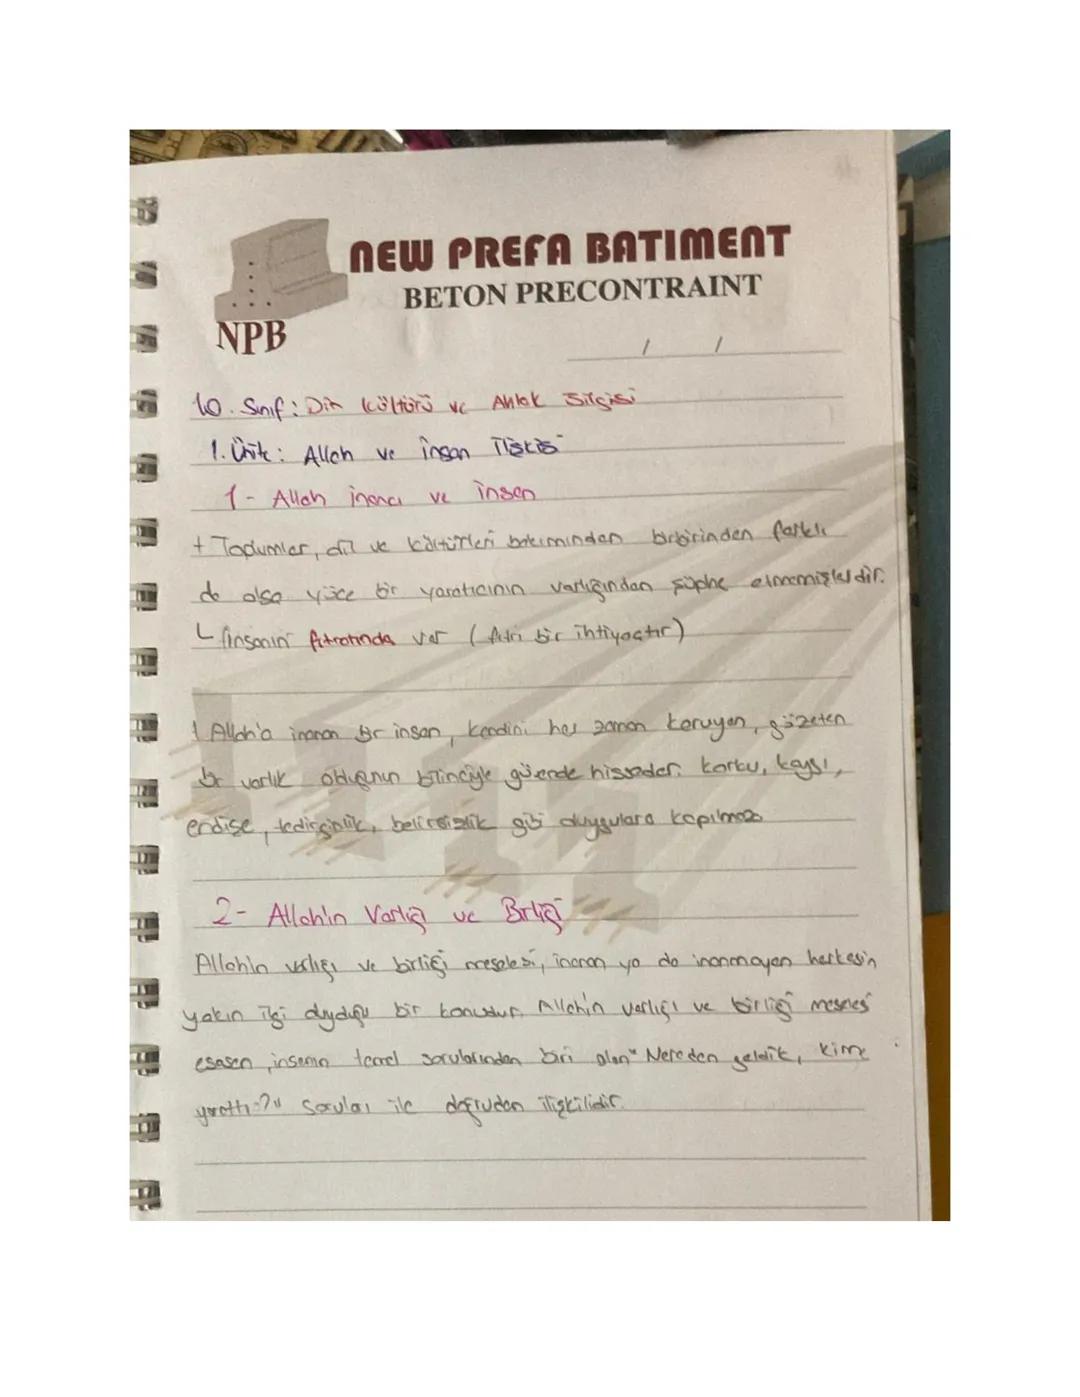 NEW PREFA BATIMENT
BETON PRECONTRAINT
NPB
/ /
10. Sınıf: Din Kültürü ve Ahlak Bilgisi
1. Ünite: Allah ve İnsan İlişkisi
1- Allah inancı ve insan
+ Toplumlar, dil ve kültürleri bakımından birbirinden farklı
da olsa yüce bir yaratıcının varlığından şüphe etmemişlerdir.
└ İnsanın fıtratında var (fıtri bir ihtiyaçtır)
! Allah'a inanan bir insan, kendini her zaman koruyan, gözeten
bir varlık olduğunun bilinciyle güvende hisseder. Korku, kaygı,
endişe, tedirginlik, belirsizlik gibi duygulara kapılmaz
2- Allah'ın Varlığı ve Birliği
Allah'ın varlığı ve birliği meselesi, inanan ya da inanmayan herkesin
yakın ilgi duyduğu bir konudur. Allah'ın varlığı ve birliği meselesi
esasen, insanın temel sorularından biri olan "Nereden geldik, kim
yarattı?" soruları ile doğrudan ilişkilidir.